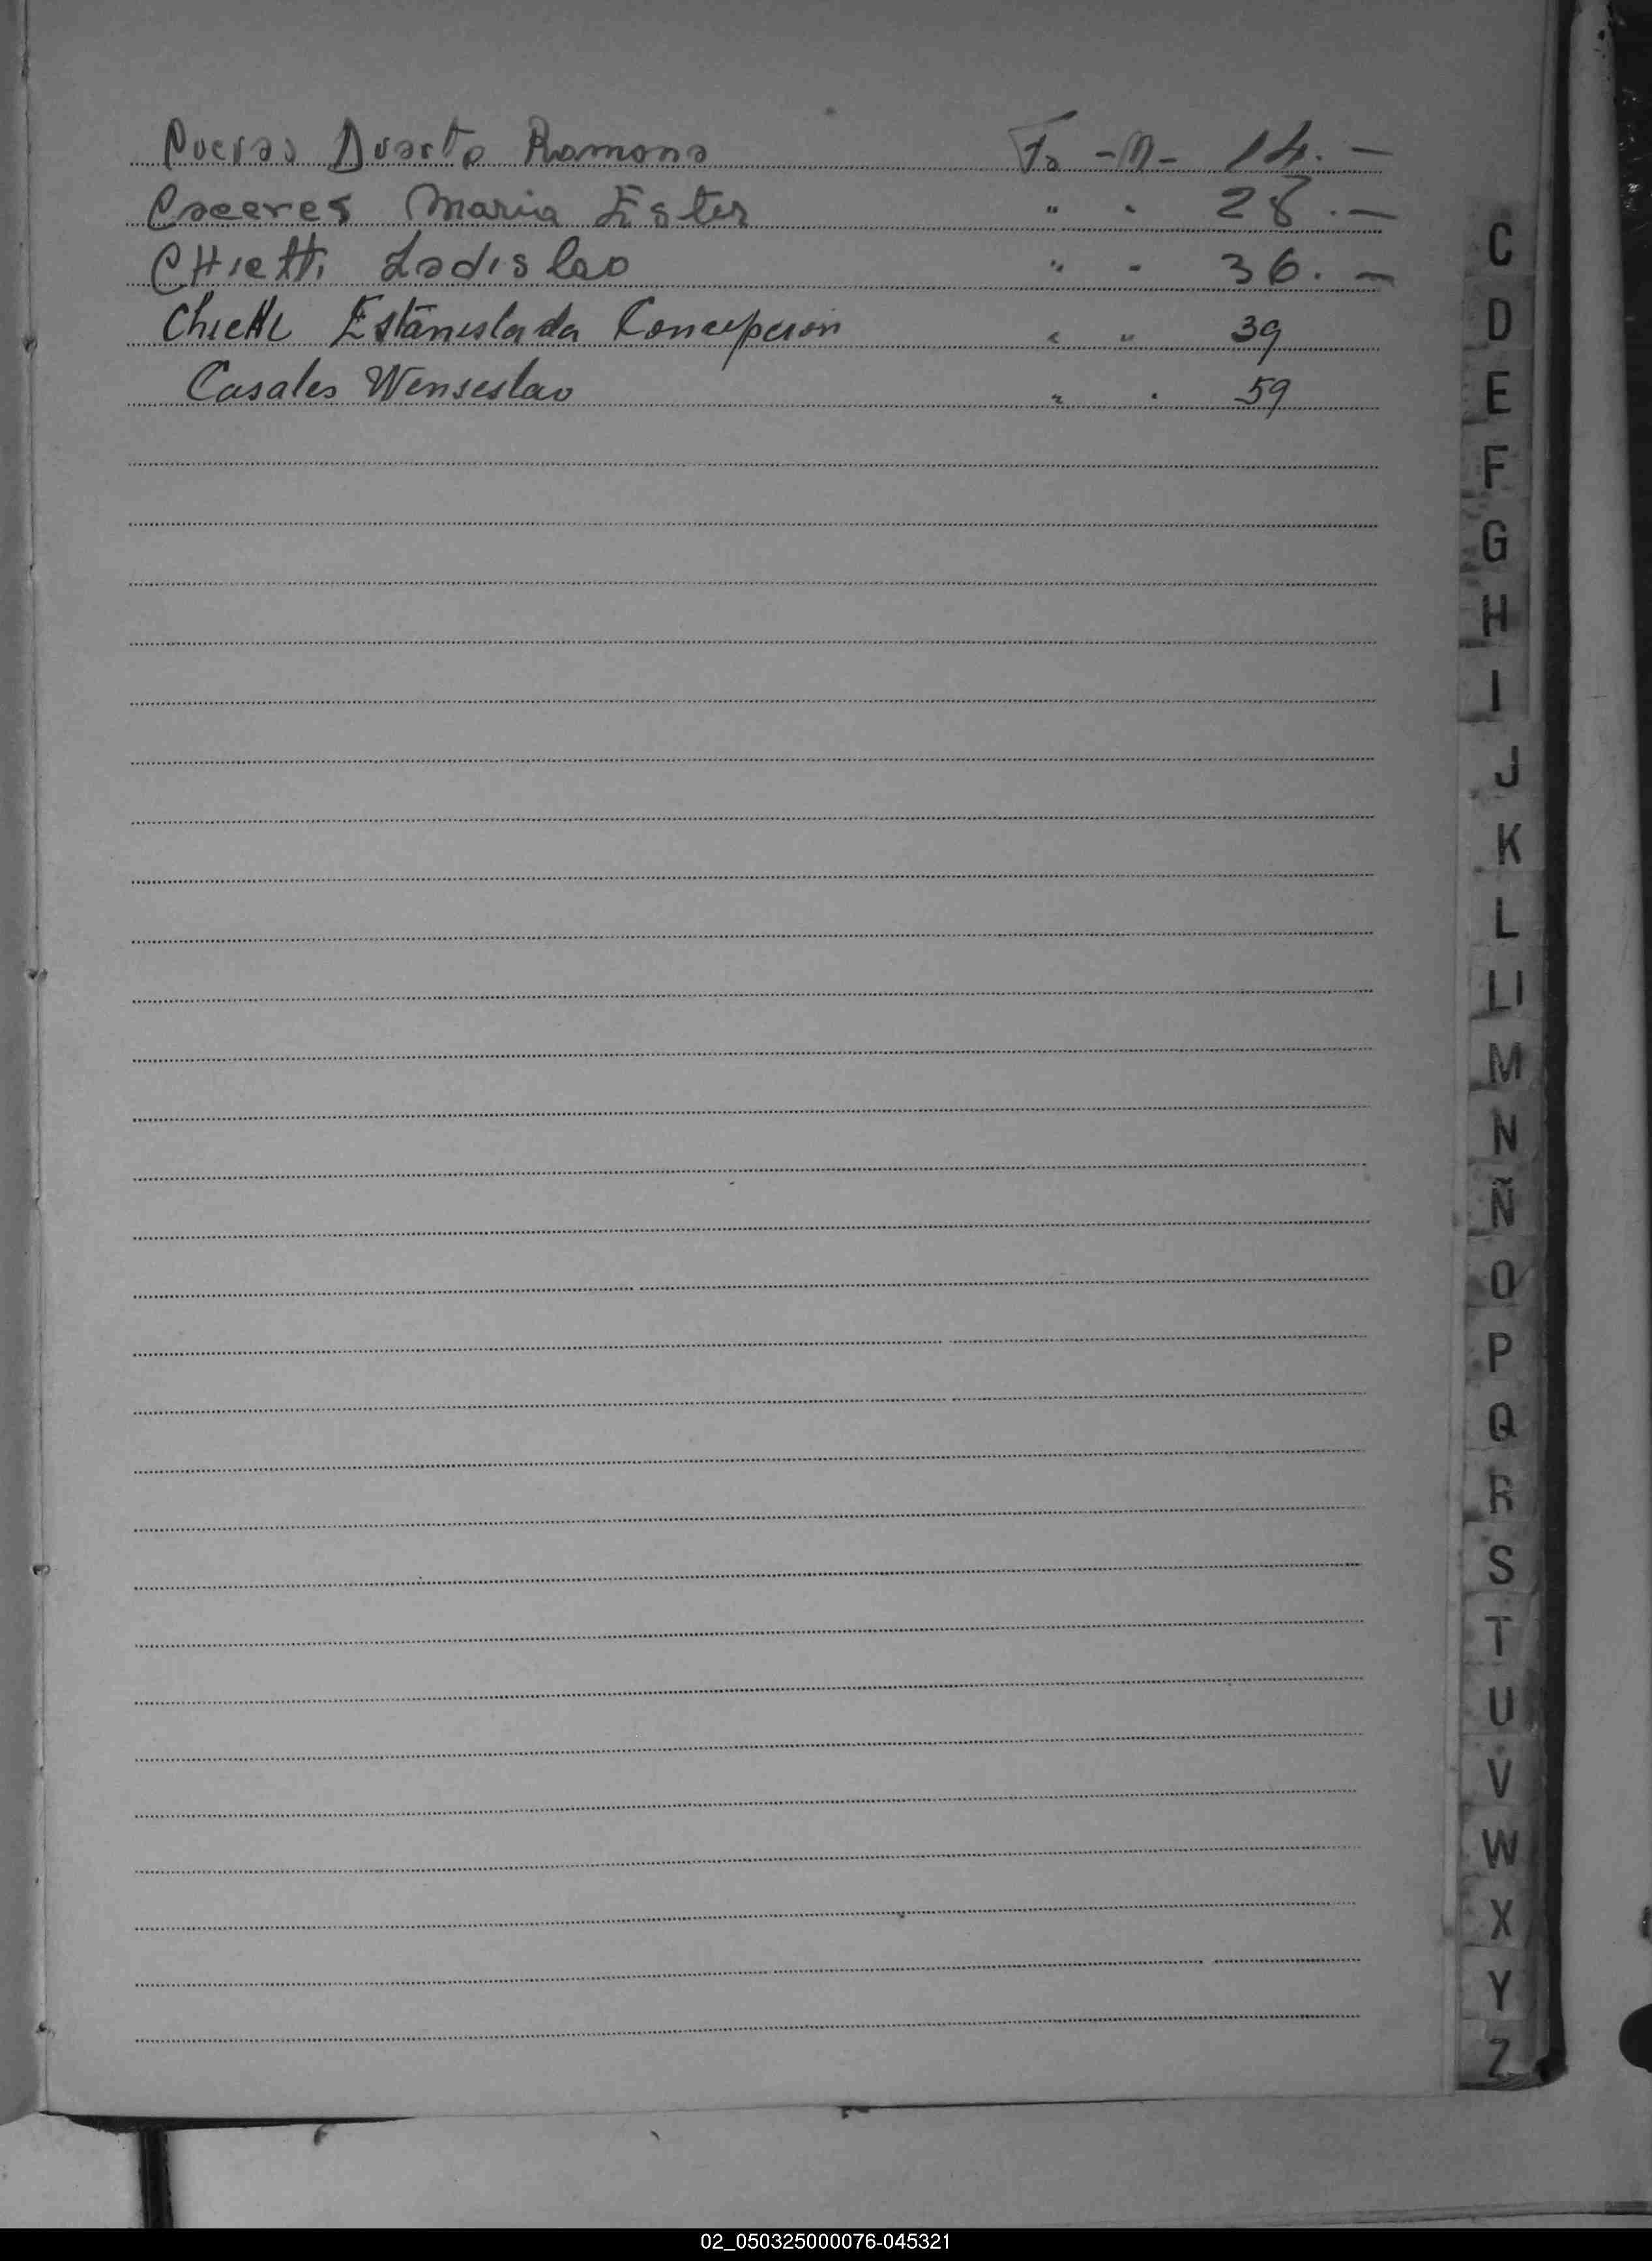 Duarte Ramona Fo - N - 14. -
Caceres Maria Ester " " 28. -
CHietti Ladislao " " 36. -
Chietti Estanislada Concepcion " " 39
Casales Wenseslao " " 59
C
D
E
F
G
H
I
J
K
L
Ll
M
N
Ñ
O
P
Q
R
S
T
U
V
W
X
Y
Z
02_050325000076-045321